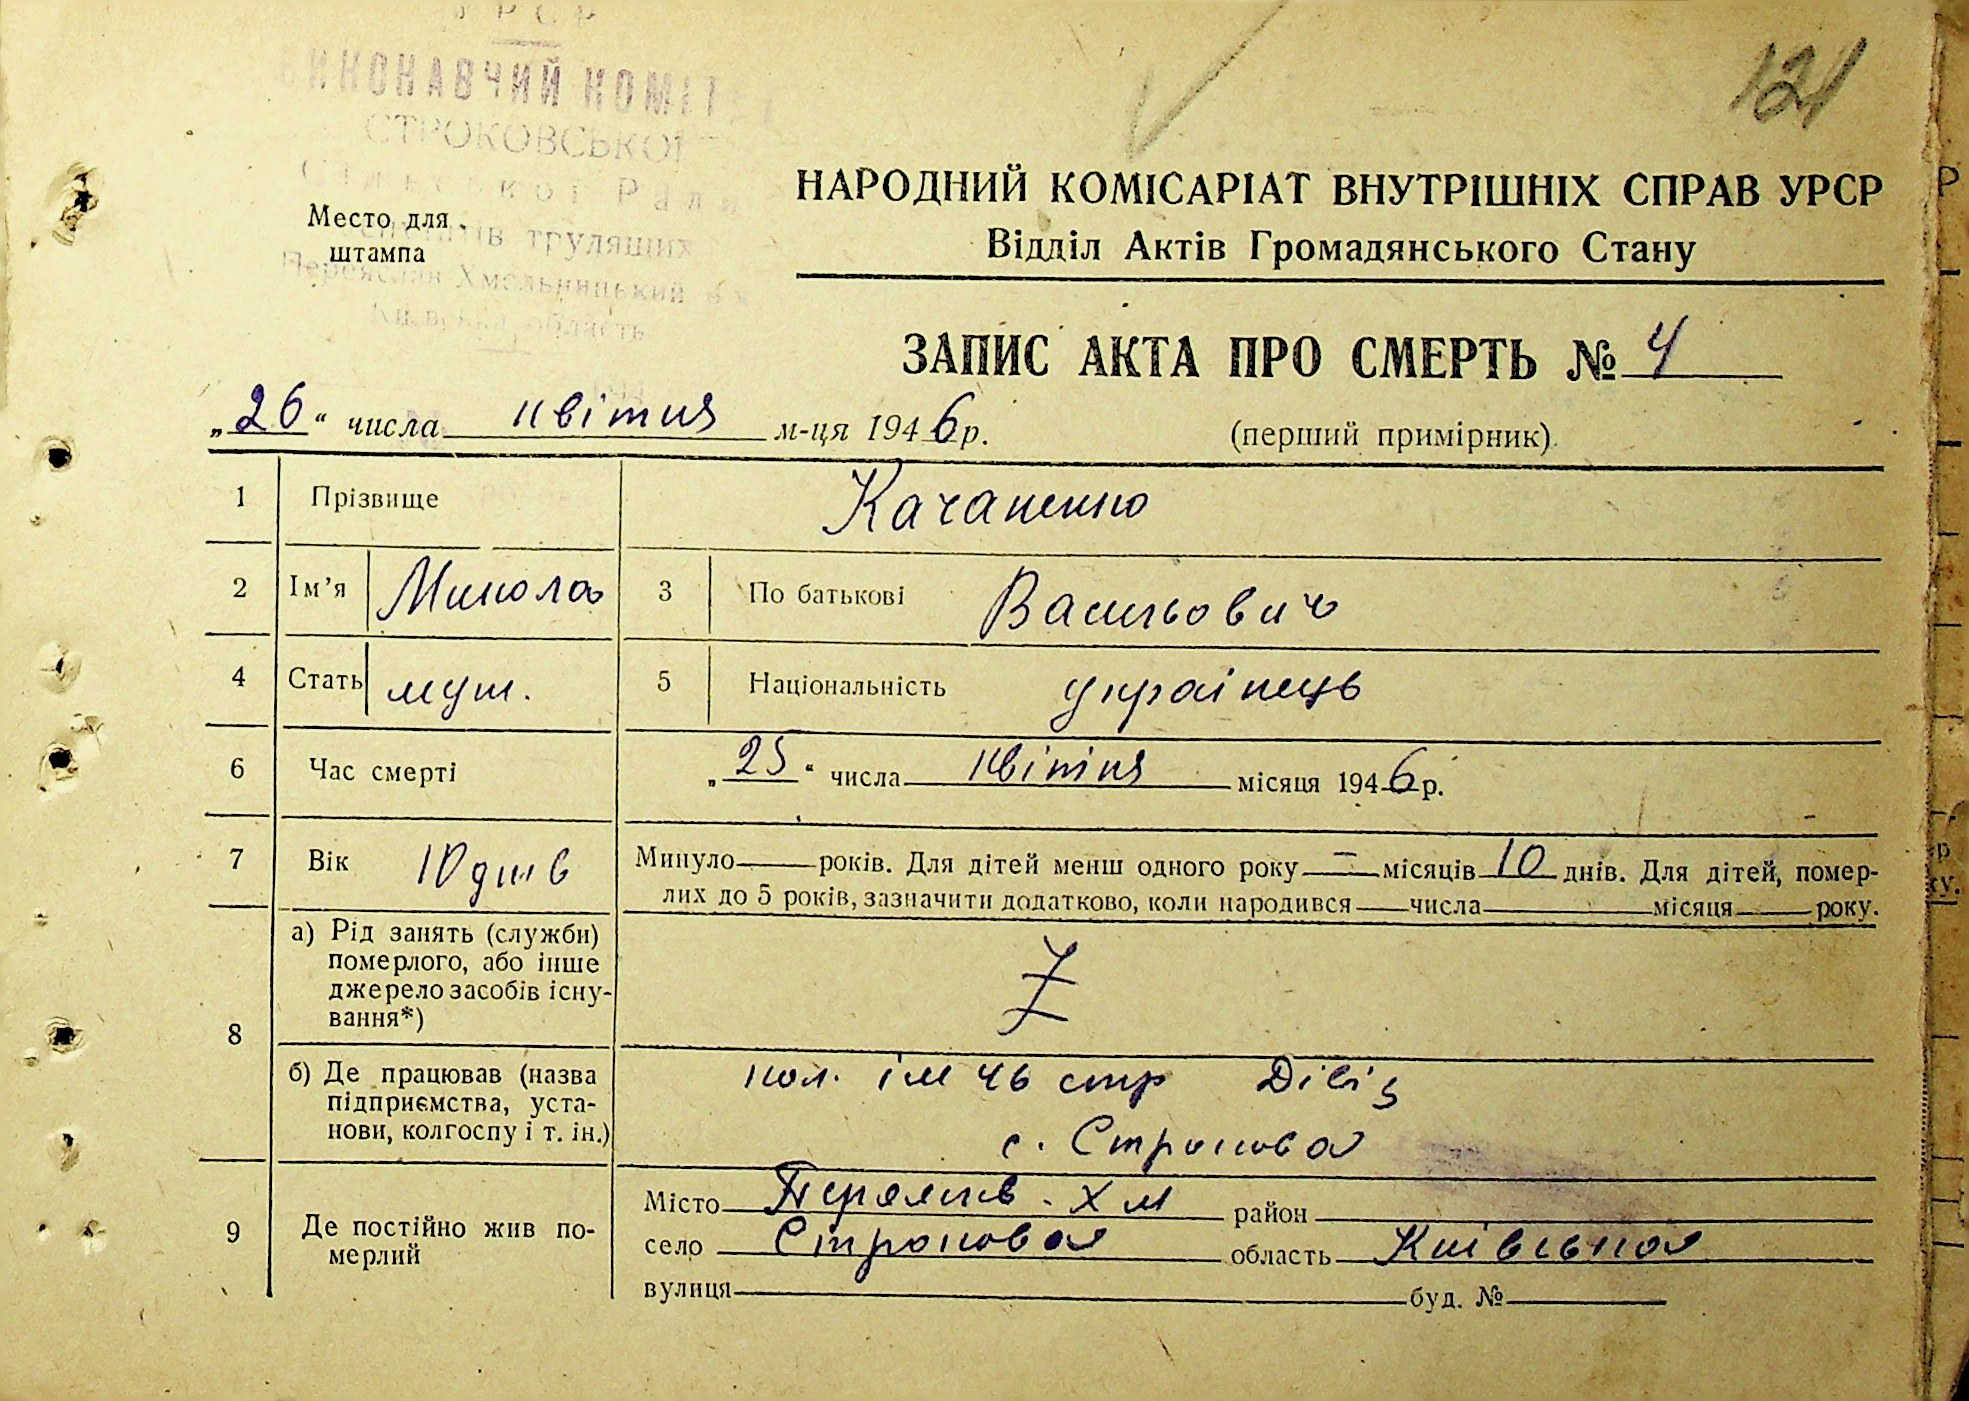 УРСР
ВИКОНАВЧИЙ КОМІТЕТ
СТРОКОВСЬКОЇ
Сільської Ради
депутатів трудящих
Переяслав Хмельницький
Київська область
121
Место для
штампа
НАРОДНИЙ КОМІСАРІАТ ВНУТРІШНІХ СПРАВ УРСР
Відділ Актів Громадянського Стану
ЗАПИС АКТА ПРО СМЕРТЬ № 4
„26“ числа квітня м-ця 1946 р.
(перший примірник)
1 Прізвище Качаненко
2 Ім’я Микола 3 По батькові Васильович
4 Стать муж. 5 Національність українець
6 Час смерті „25“ числа квітня місяця 1946 р.
7 Вік 10 днів Минуло — років. Для дітей менш одного року — місяців 10 днів. Для дітей, помер-
лих до 5 років, зазначити додатково, коли народився числа місяця року.
8 а) Рід занять (служби)
померлого, або інше
джерело засобів існу-
вання*)
б) Де працював (назва
підприємства, уста-
нови, колгоспу і т. ін.)
кол. ім 46 стр Дівіз
с. Строкова
9 Де постійно жив по-
мерлий
Місто Переяслав-Хм район
село Строкова область Київська
вулиця буд. №